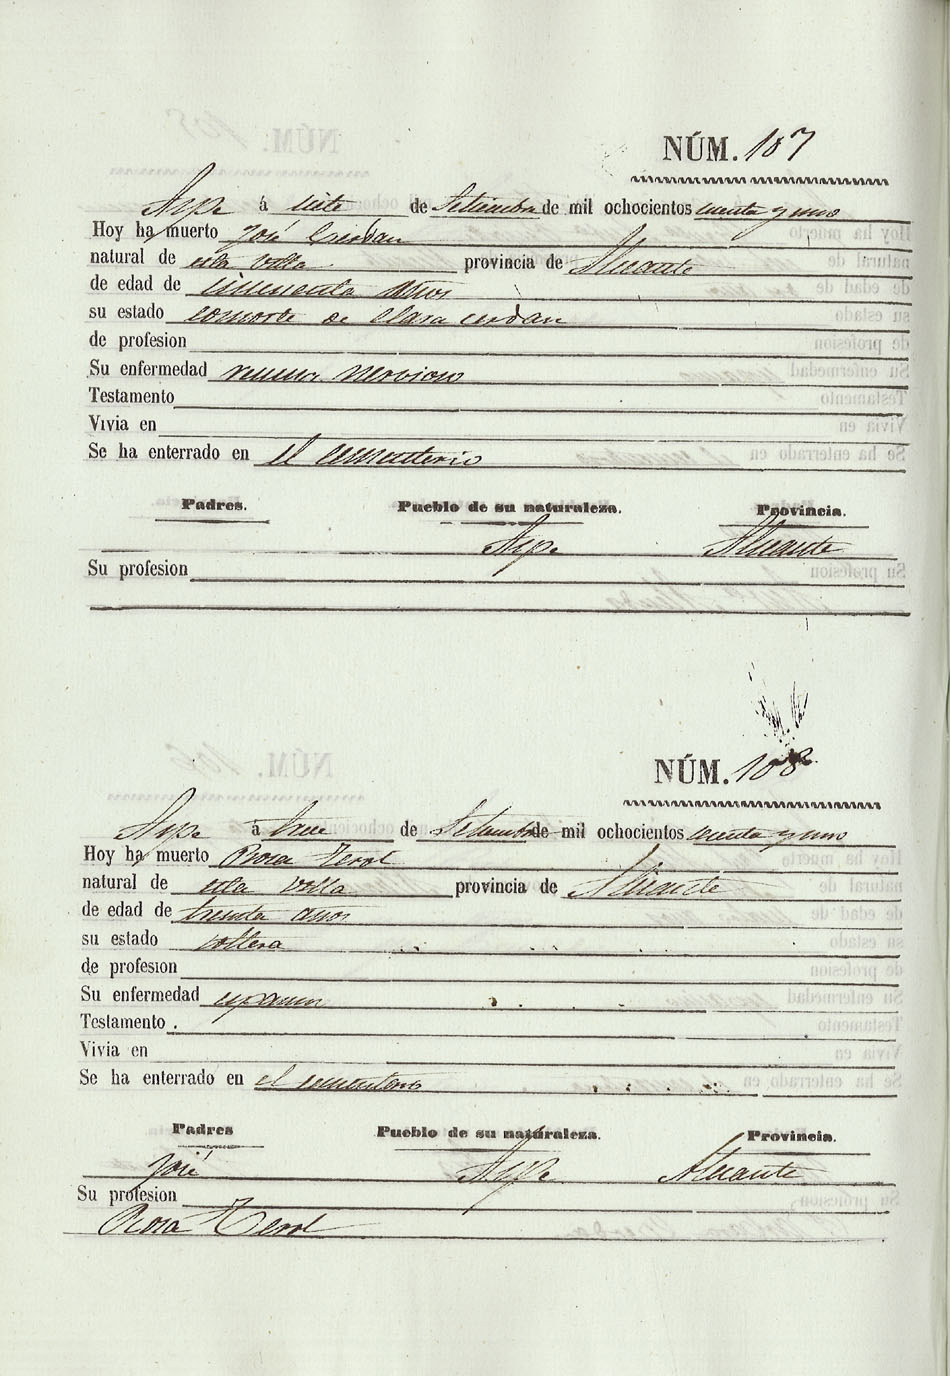 NÚM. 107
Aspe á siete de Setiembre de mil ochocientos cuenta y uno
Hoy ha muerto José Cerdan
natural de esta Villa provincia de Alicante
de edad de cincuenta años
su estado consorte de Clara Cerdan
de profesion
Su enfermedad reuma nervioso
Testamento
Vivia en
Se ha enterrado en el cementerio
Padres. Pueblo de su naturaleza. Provincia.
Aspe Alicante
Su profesion
NÚM. 108
Aspe á trece de Setiembre de mil ochocientos cuenta y uno
Hoy ha muerto Rosa Terol
natural de esta Villa provincia de Alicante
de edad de treinta años
su estado soltera
de profesion
Su enfermedad
Testamento
Vivia en
Se ha enterrado en el cementerio
Padres Pueblo de su naturaleza. Provincia.
José Aspe Alicante
Su profesion
Rosa Terol